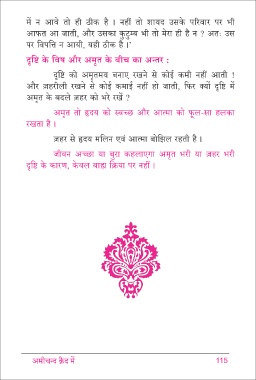 में न आवे तो ही ठीक है । नहीं तो शायद उसके परिवार पर भी
आफत आ जाती, और उसका कुटुम्ब भी तो मेरा ही है न ? अतः उस
पर विपत्ति न आयी, यही ठीक है ।'
दृष्टि के विष और अमृत के बीच का अन्तर :
दृष्टि को अमृतमय बनाए रखने से कोई कमी नहीं आती !
और ज़हरीली रखने से कोई कमाई नहीं हो जाती, फिर क्यों दृष्टि में
अमृत के बदले ज़हर को भरे रखें ?
अमृत तो हृदय को स्वच्छ और आत्मा को फूल-सा हलका
रखता है ।
ज़हर से हृदय मलिन एवं आत्मा बोझिल रहती है ।
जीवन अच्छा या बुरा कहलाएगा अमृत भरी या ज़हर भरी
दृष्टि के कारण, केवल बाह्य क्रिया पर नहीं ।
अमीचन्द क़ैद में 115